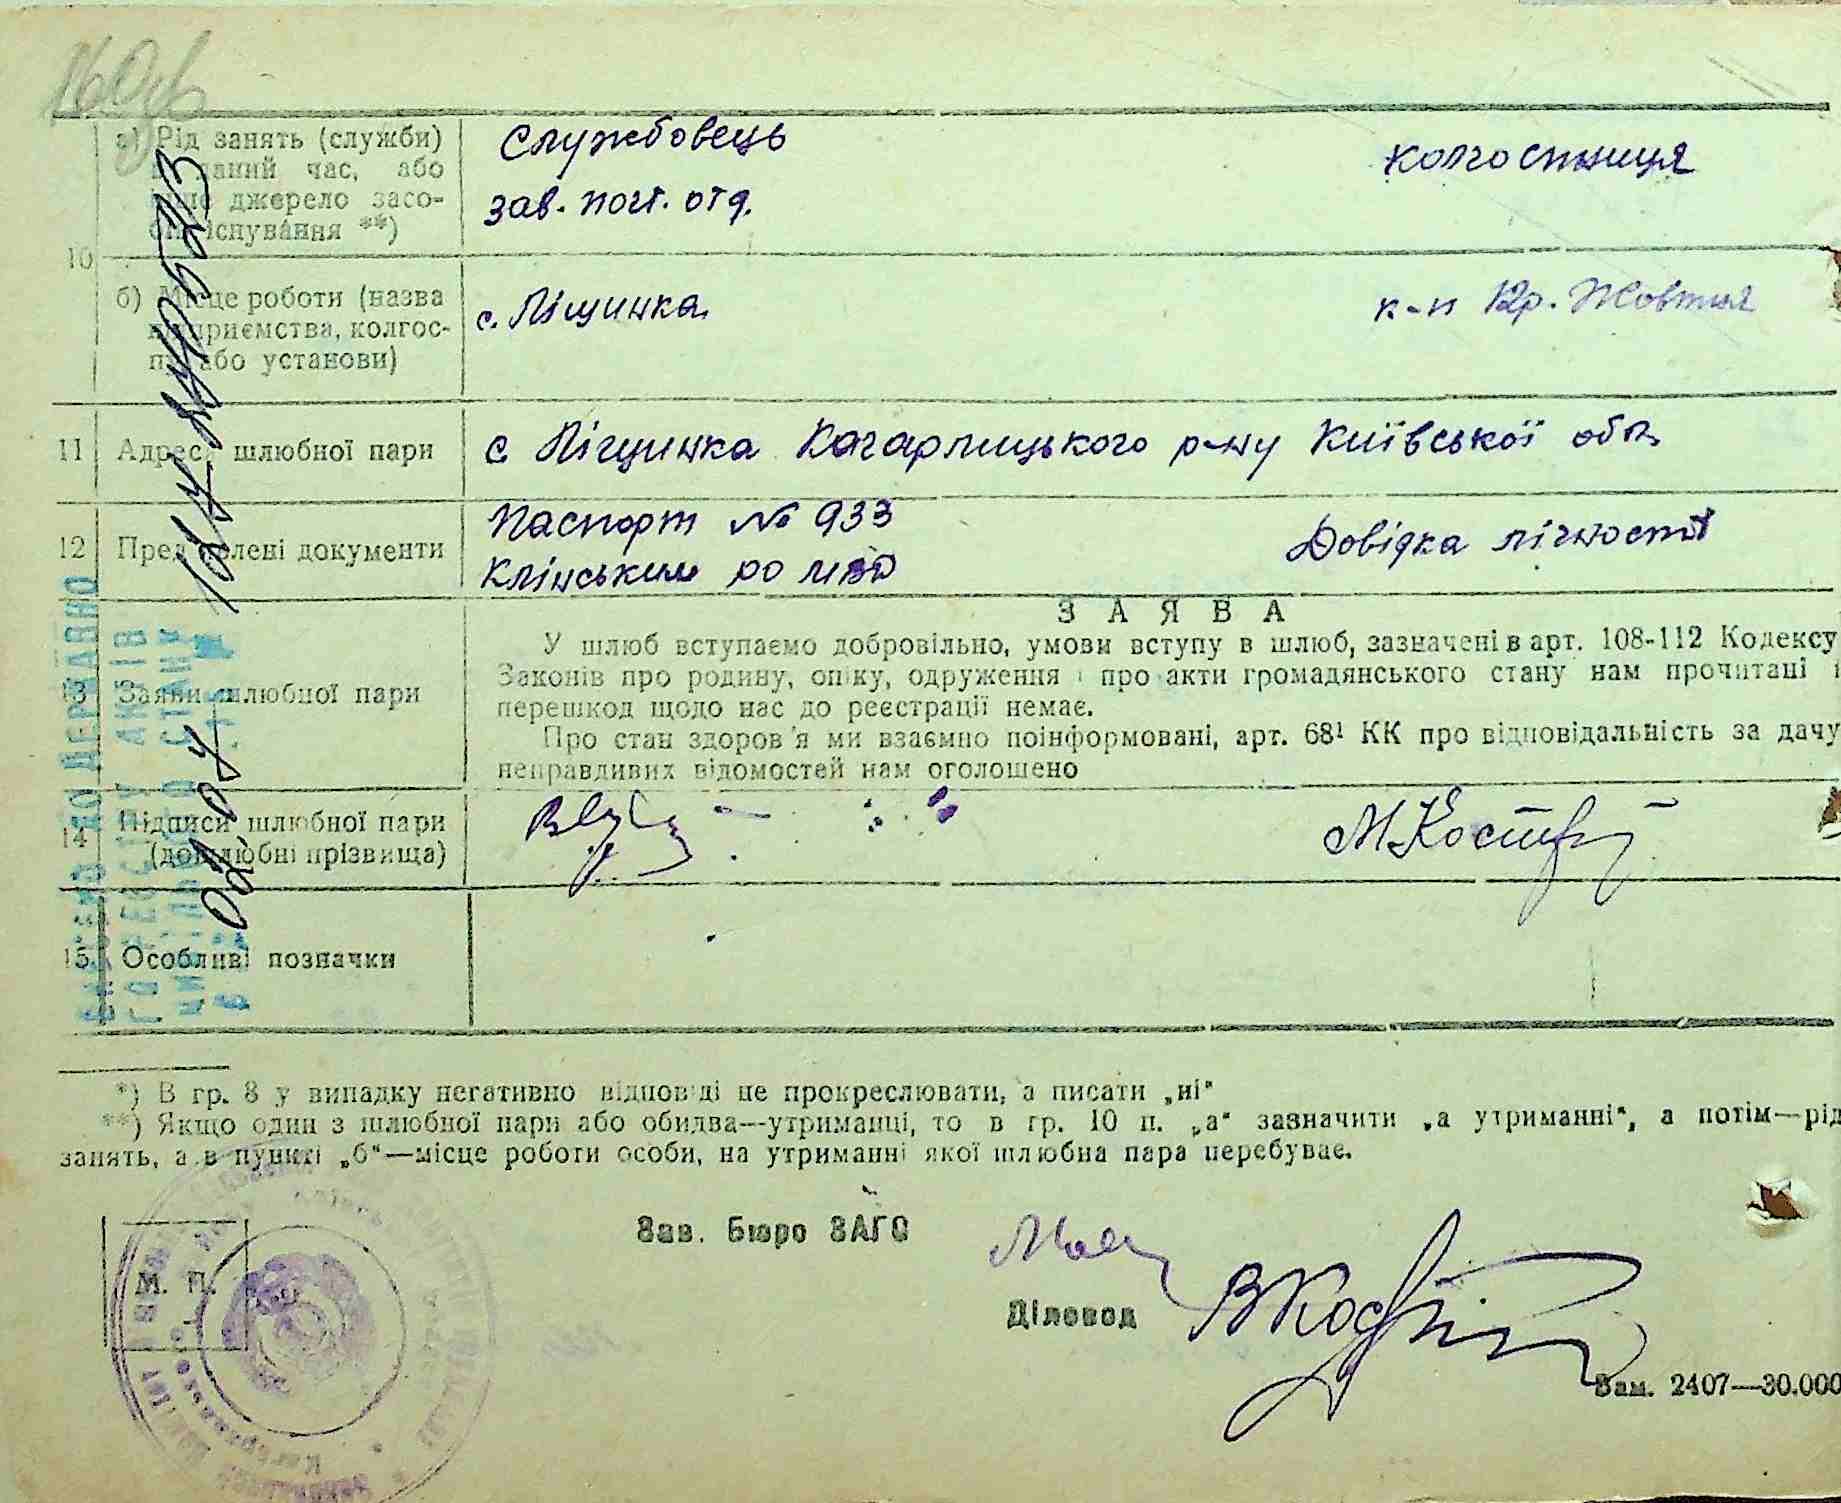 а) Рід занять (служби)
даний час, або
інше джерело засо-
бів існування **)
Службовець
зав. почт. отд.
колгоспниця
10
б) Місце роботи (назва
підприємства, колгос-
пу або установи)
с. Ліщинка
к-п Чр. Жовтня
11 Адреса шлюбної пари
с Ліщинка Кагарлицького р-ну Київської обл.
12 Пред'явлені документи
Паспорт № 933
Клінським РО МВД
Довідка лічності
ЗАЯВА
13 Заяви шлюбної пари
У шлюб вступаємо добровільно, умови вступу в шлюб, зазначені в арт. 108-112 Кодексу
Законів про родину, опіку, одруження і про акти громадянського стану нам прочитані і
перешкод щодо нас до реєстрації немає.
Про стан здоров'я ми взаємно поінформовані, арт. 68¹ КК про відповідальність за дачу
неправдивих відомостей нам оголошено
14 Підписи шлюбної пари
(дошлюбні прізвища)
15 Особливі позначки
*) В гр. 8 у випадку негативно відповіді не прокреслювати, а писати „ні"
**) Якщо один з шлюбної пари або обидва—утриманці, то в гр. 10 п. „а" зазначити „а утриманні", а потім—рід
занять, а в пункті „б"—місце роботи особи, на утриманні якої шлюбна пара перебуває.
Зав. Бюро ЗАГС
М. П.
Діловод
Зам. 2407—30.000